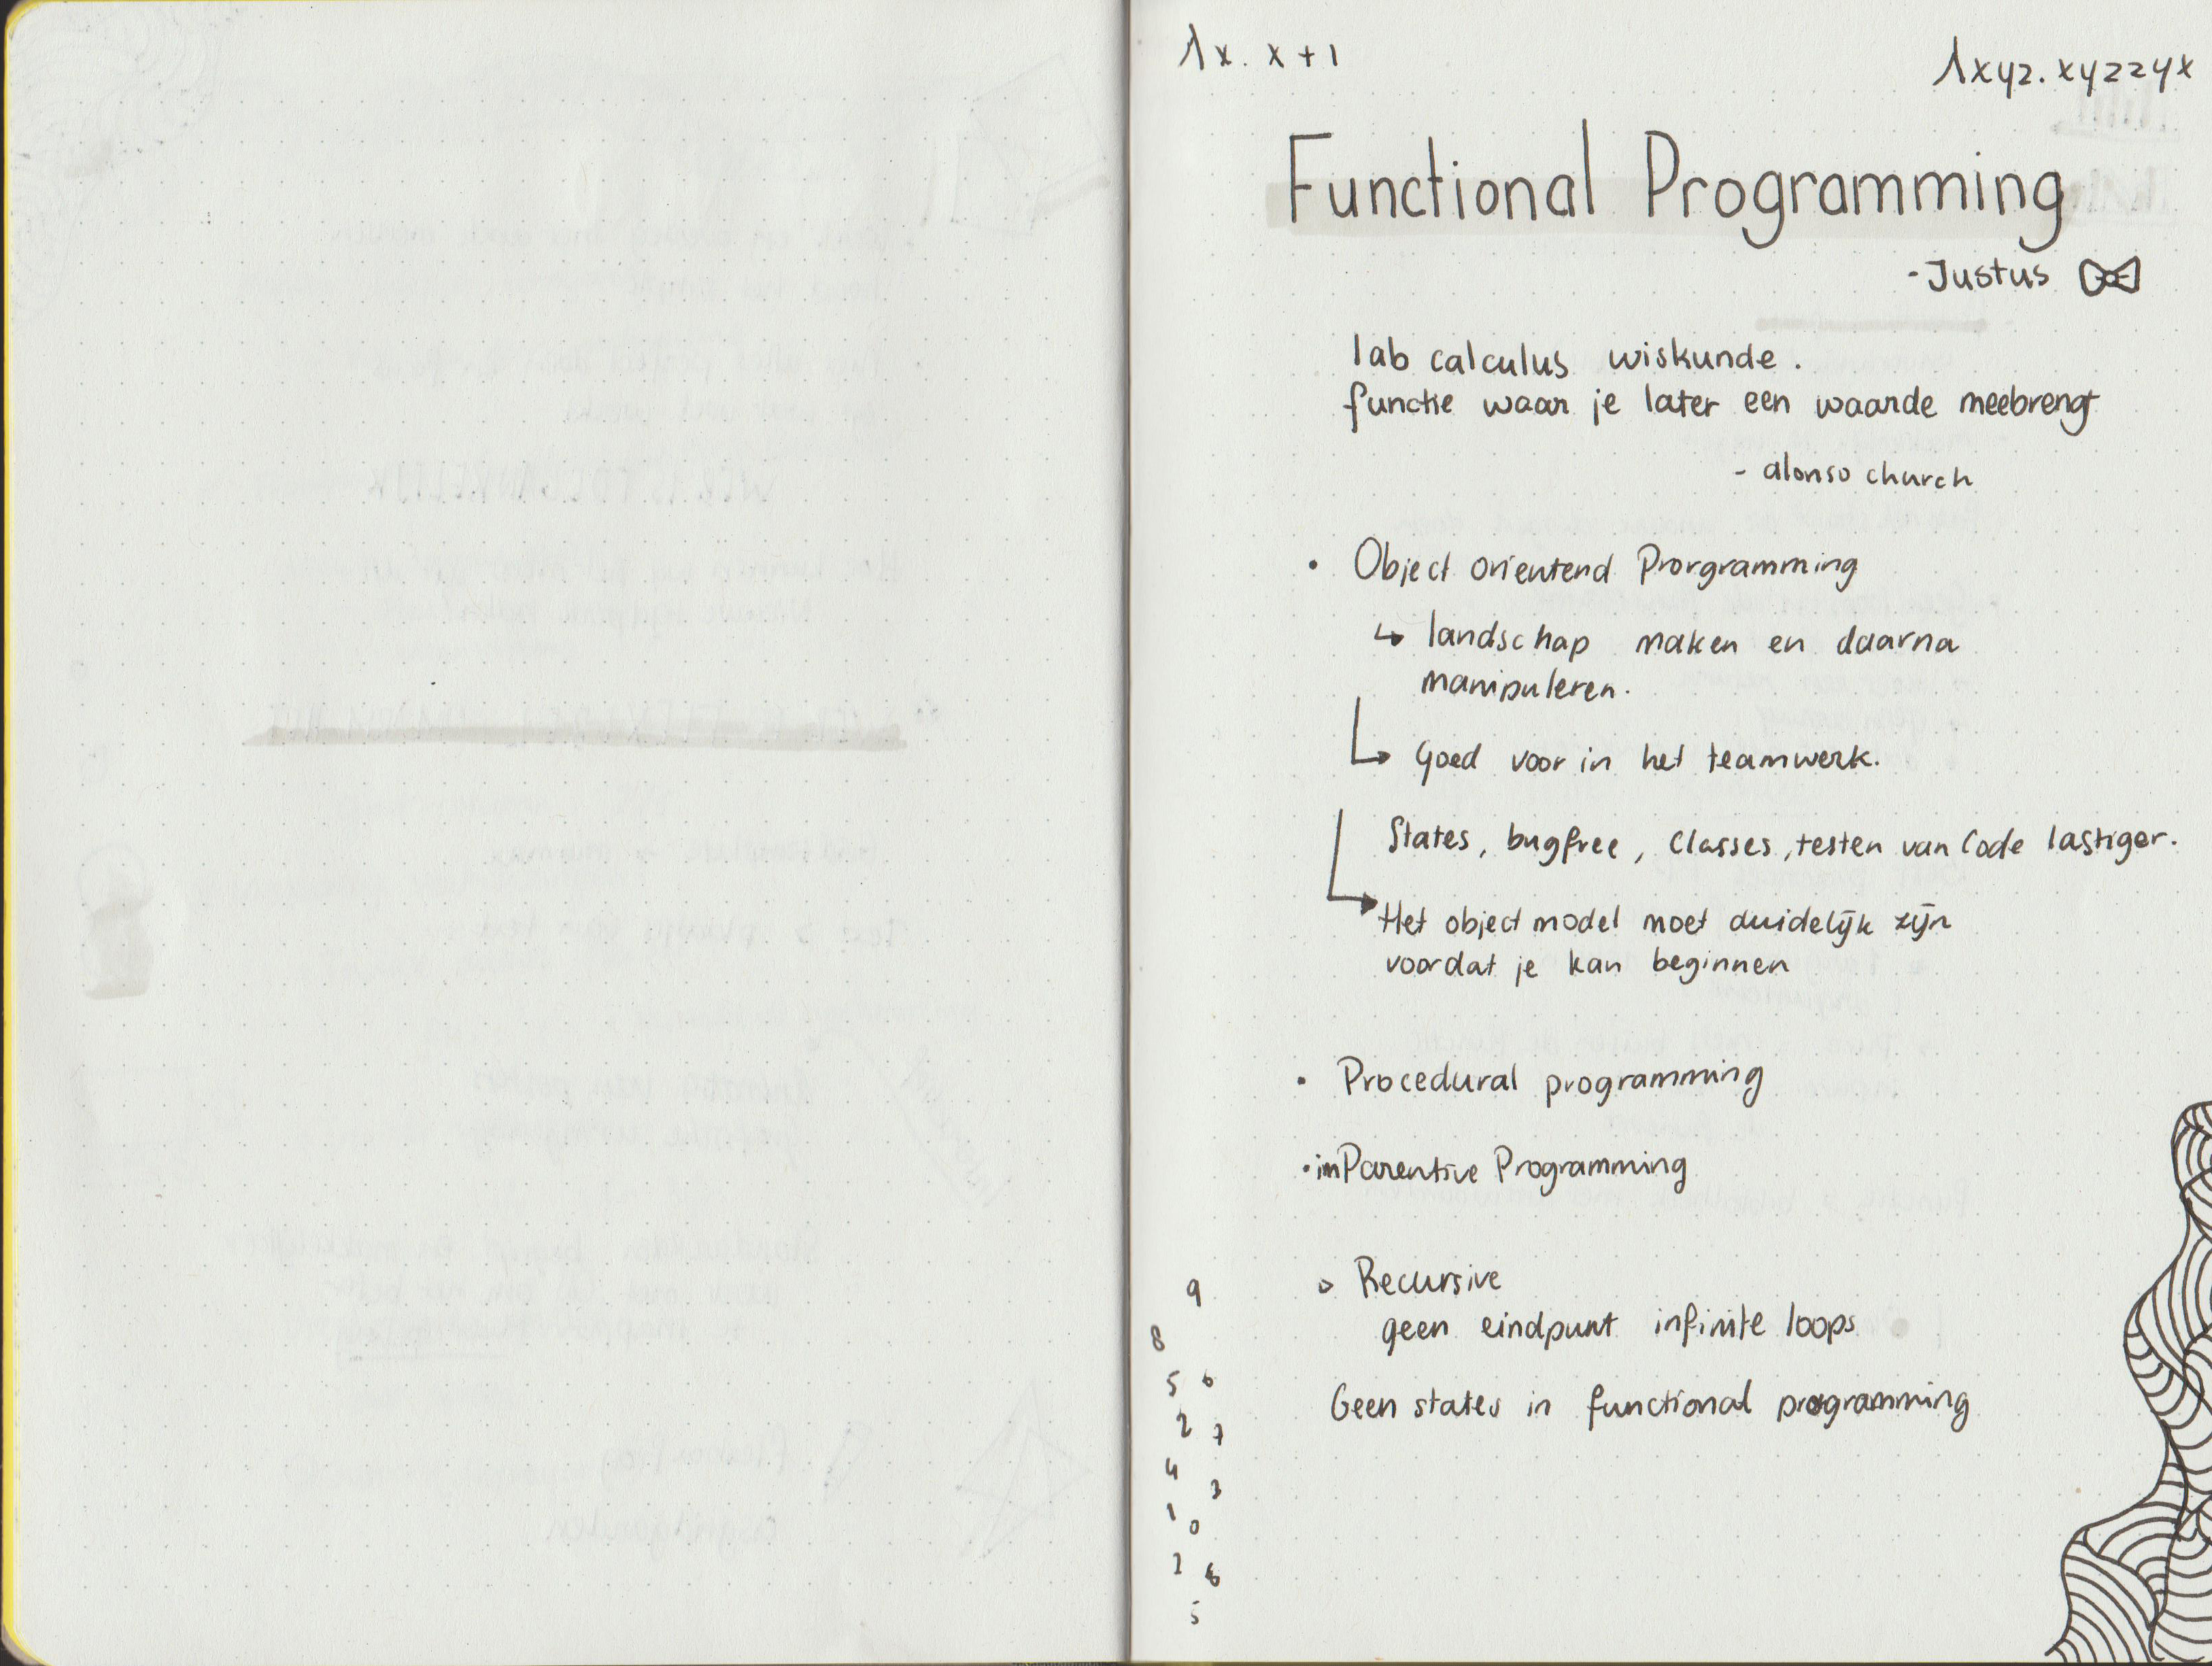 λx. x + 1
λxyz. xyzzyx
Functional Programming
- Justus
lab calculus wiskunde.
functie waar je later een waarde meebrengt
- alonso church
• Object orientend Prorgramming
↳ landschap maken en daarna
manipuleren.
↳ Goed voor in het teamwerk.
States, bugfree, Classes, testen van Code lastiger.
↳ Het object model moet duidelijk zijn
voordat je kan beginnen
• Procedural programming
• imParentive Programming
> Recursive
geen eindpunt infinite loops
Geen states in functional programming
9
8
5 6
2 7
4
3
1
0
2 6
5